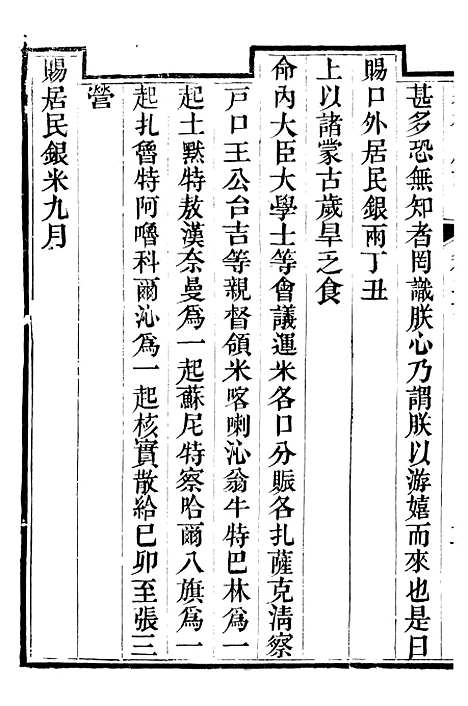 甚多恐無知者罔識朕心乃謂朕以游嬉而來也是日
賜口外居民銀兩丁丑
上以諸蒙古歲旱乏食
命內大臣大學士等會議運米各口分賑各扎薩克清察
戸口王公台吉等親督領米喀喇沁翁牛特巴林爲一
起土默特敖漢奈曼爲一起蘇尼特察哈爾八旗爲一
起扎魯特阿嚕科爾沁爲一起核實散給已卯至張三
營
賜居民銀米九月